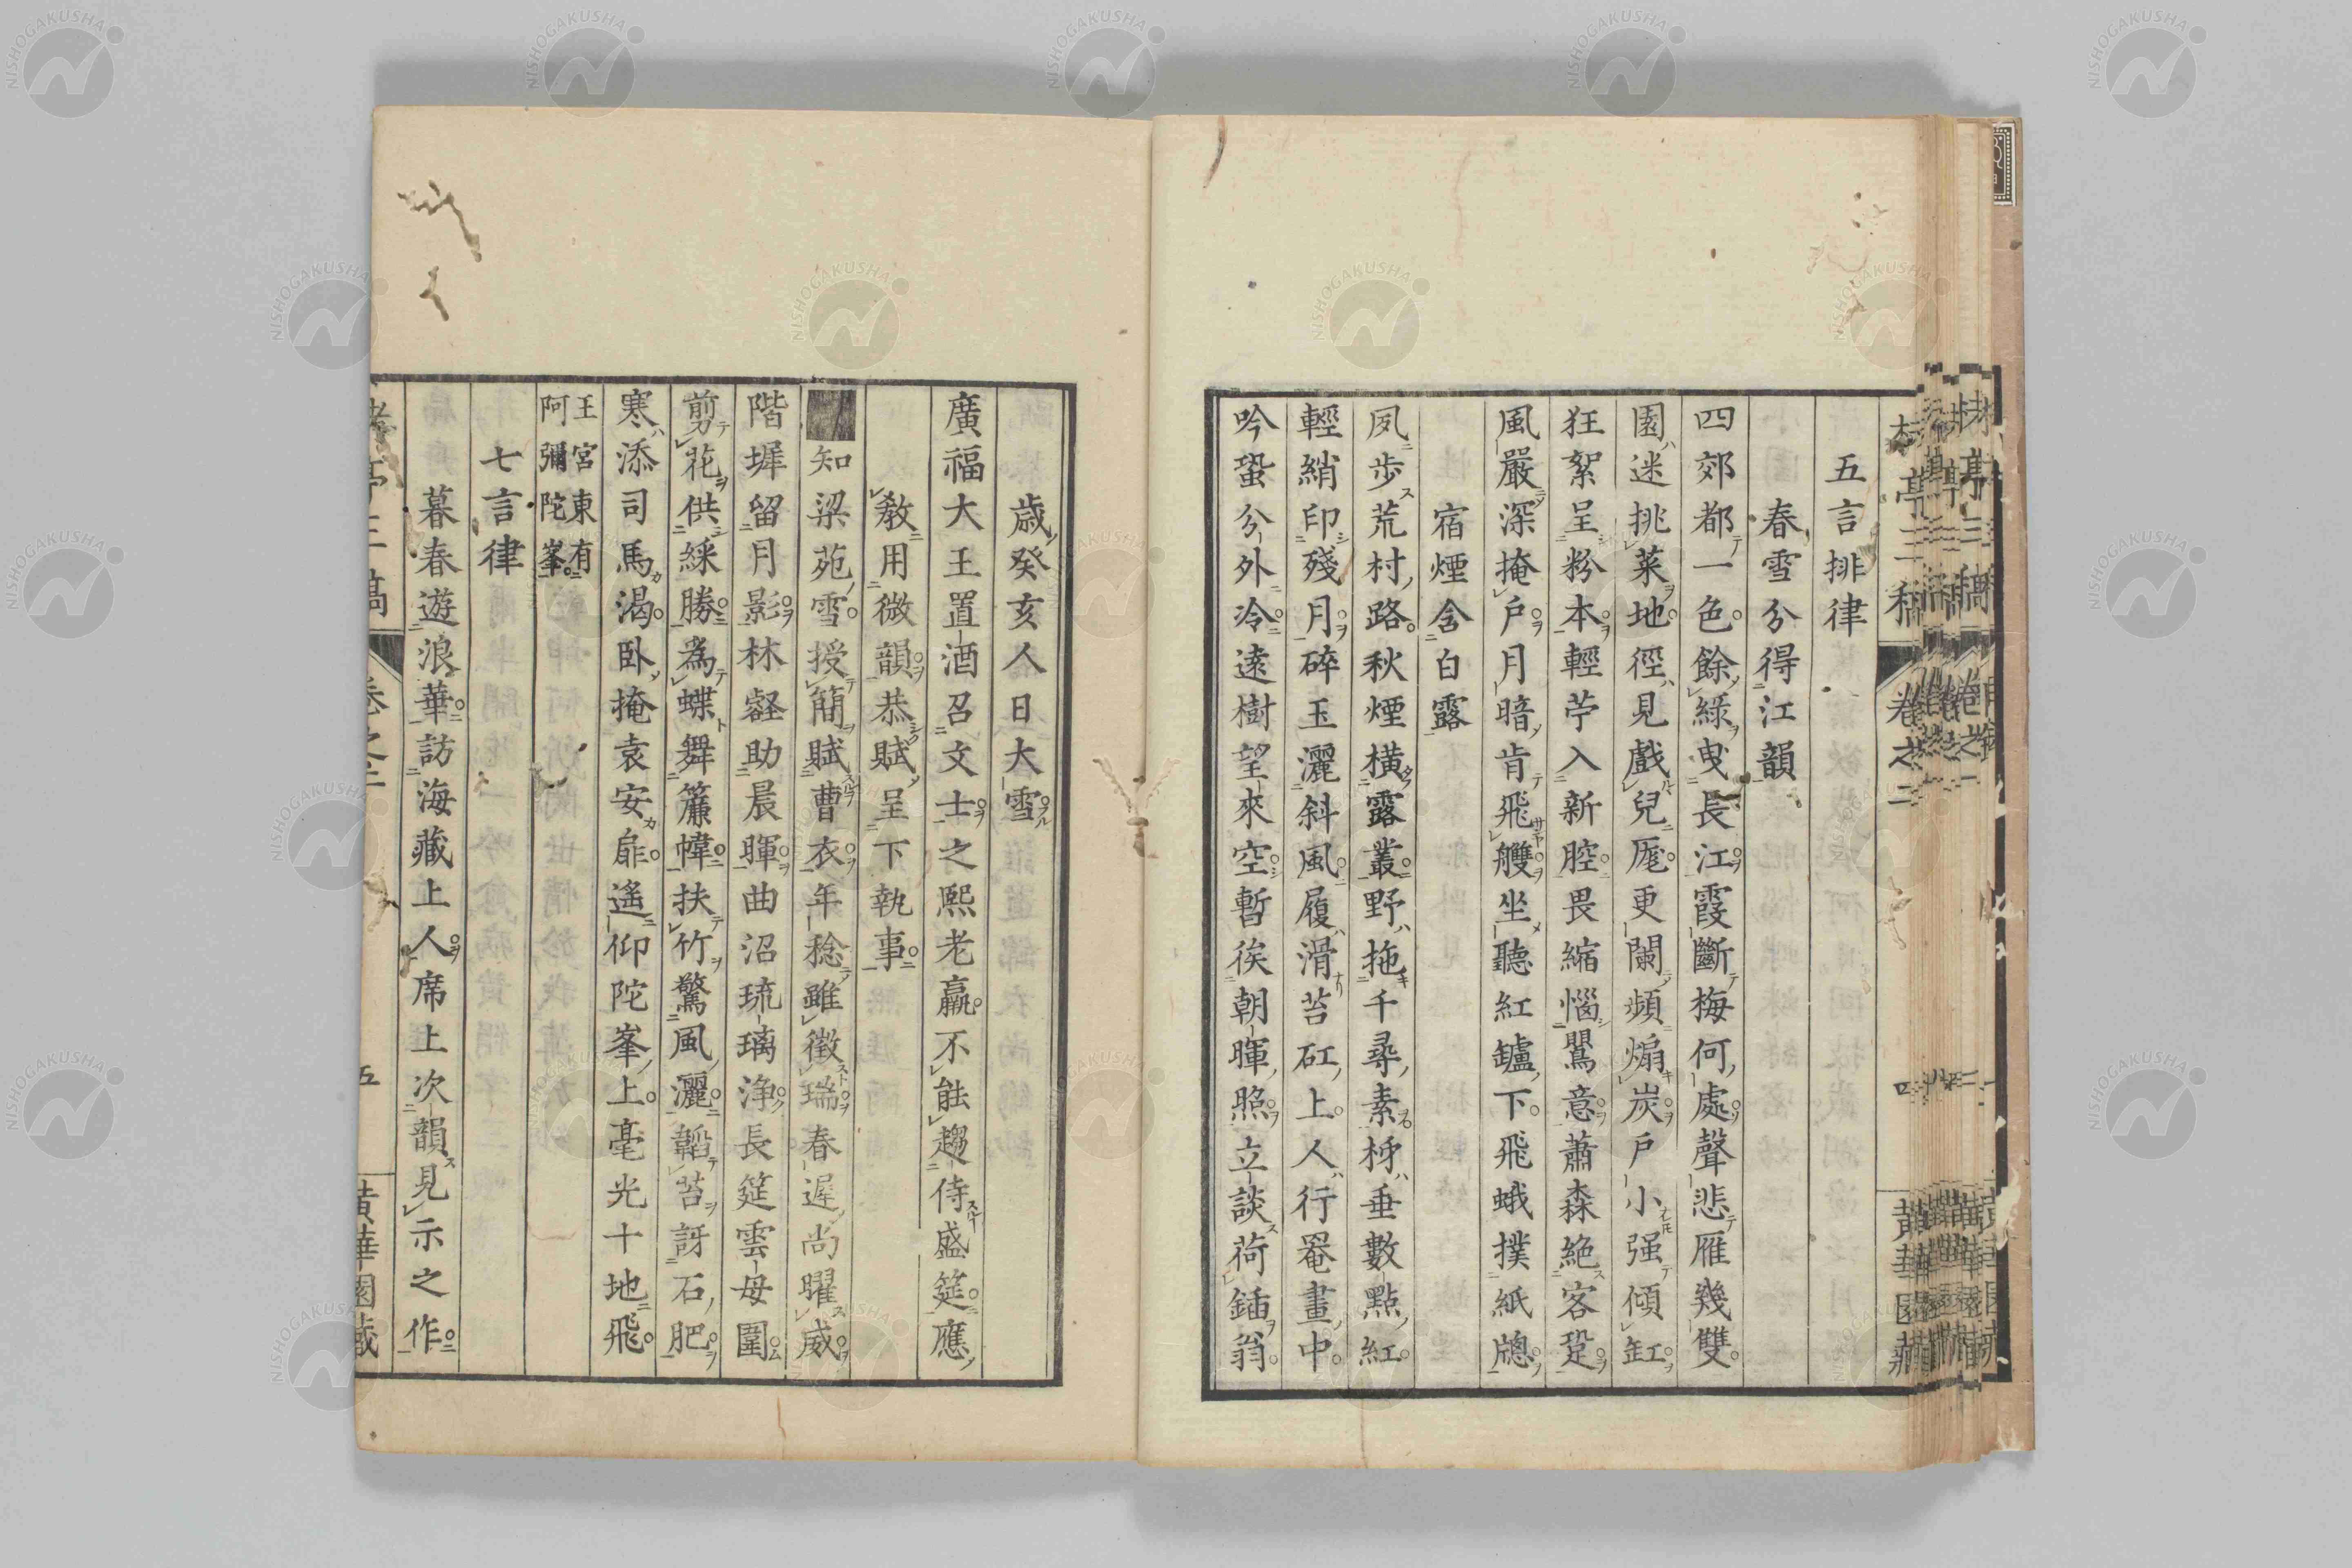 五言排律
春雪分得江韻
四郊都一色餘綠曳長江霞斷梅何處聲悲雁幾雙
園迷挑菜地徑見戲兒厖更闌頻煽炭戶小强傾缸
狂絮呈粉本輕苧入新腔畏縮惱鶯意蕭森絕客跫
風嚴深掩戶月暗肯飛艭坐聽紅鑪下飛蛾撲紙牕
宿煙含白露
夙步荒村路秋煙橫露叢野拖千尋素梯垂數點紅
輕綃印殘月碎玉灑斜風履滑苔矼上人行罨畫中
吟蛩分外冷遠樹望來空暫俟朝暉照立談荷鍤翁
歲癸亥人日大雪
廣福大王置酒召文士之熙老羸不能趨侍盛筵應
教用微韻恭賦呈下執事
知梁苑雪授簡賦曹衣年稔雖徵瑞春遲尚曜威
階墀留月影林壑助晨暉曲沼琉璃淨長筵雲母圍
剪花供綵勝爲蝶舞簾幃扶竹驚風灑韜苔訝石肥
寒添司馬渴臥掩袁安扉遙仰陀峯上毫光十地飛
王宮東有
阿彌陀峯
七言律
暮春遊浪華訪海藏上人席上次韻見示之作
卷之二
五
NISHOGAKUSHA